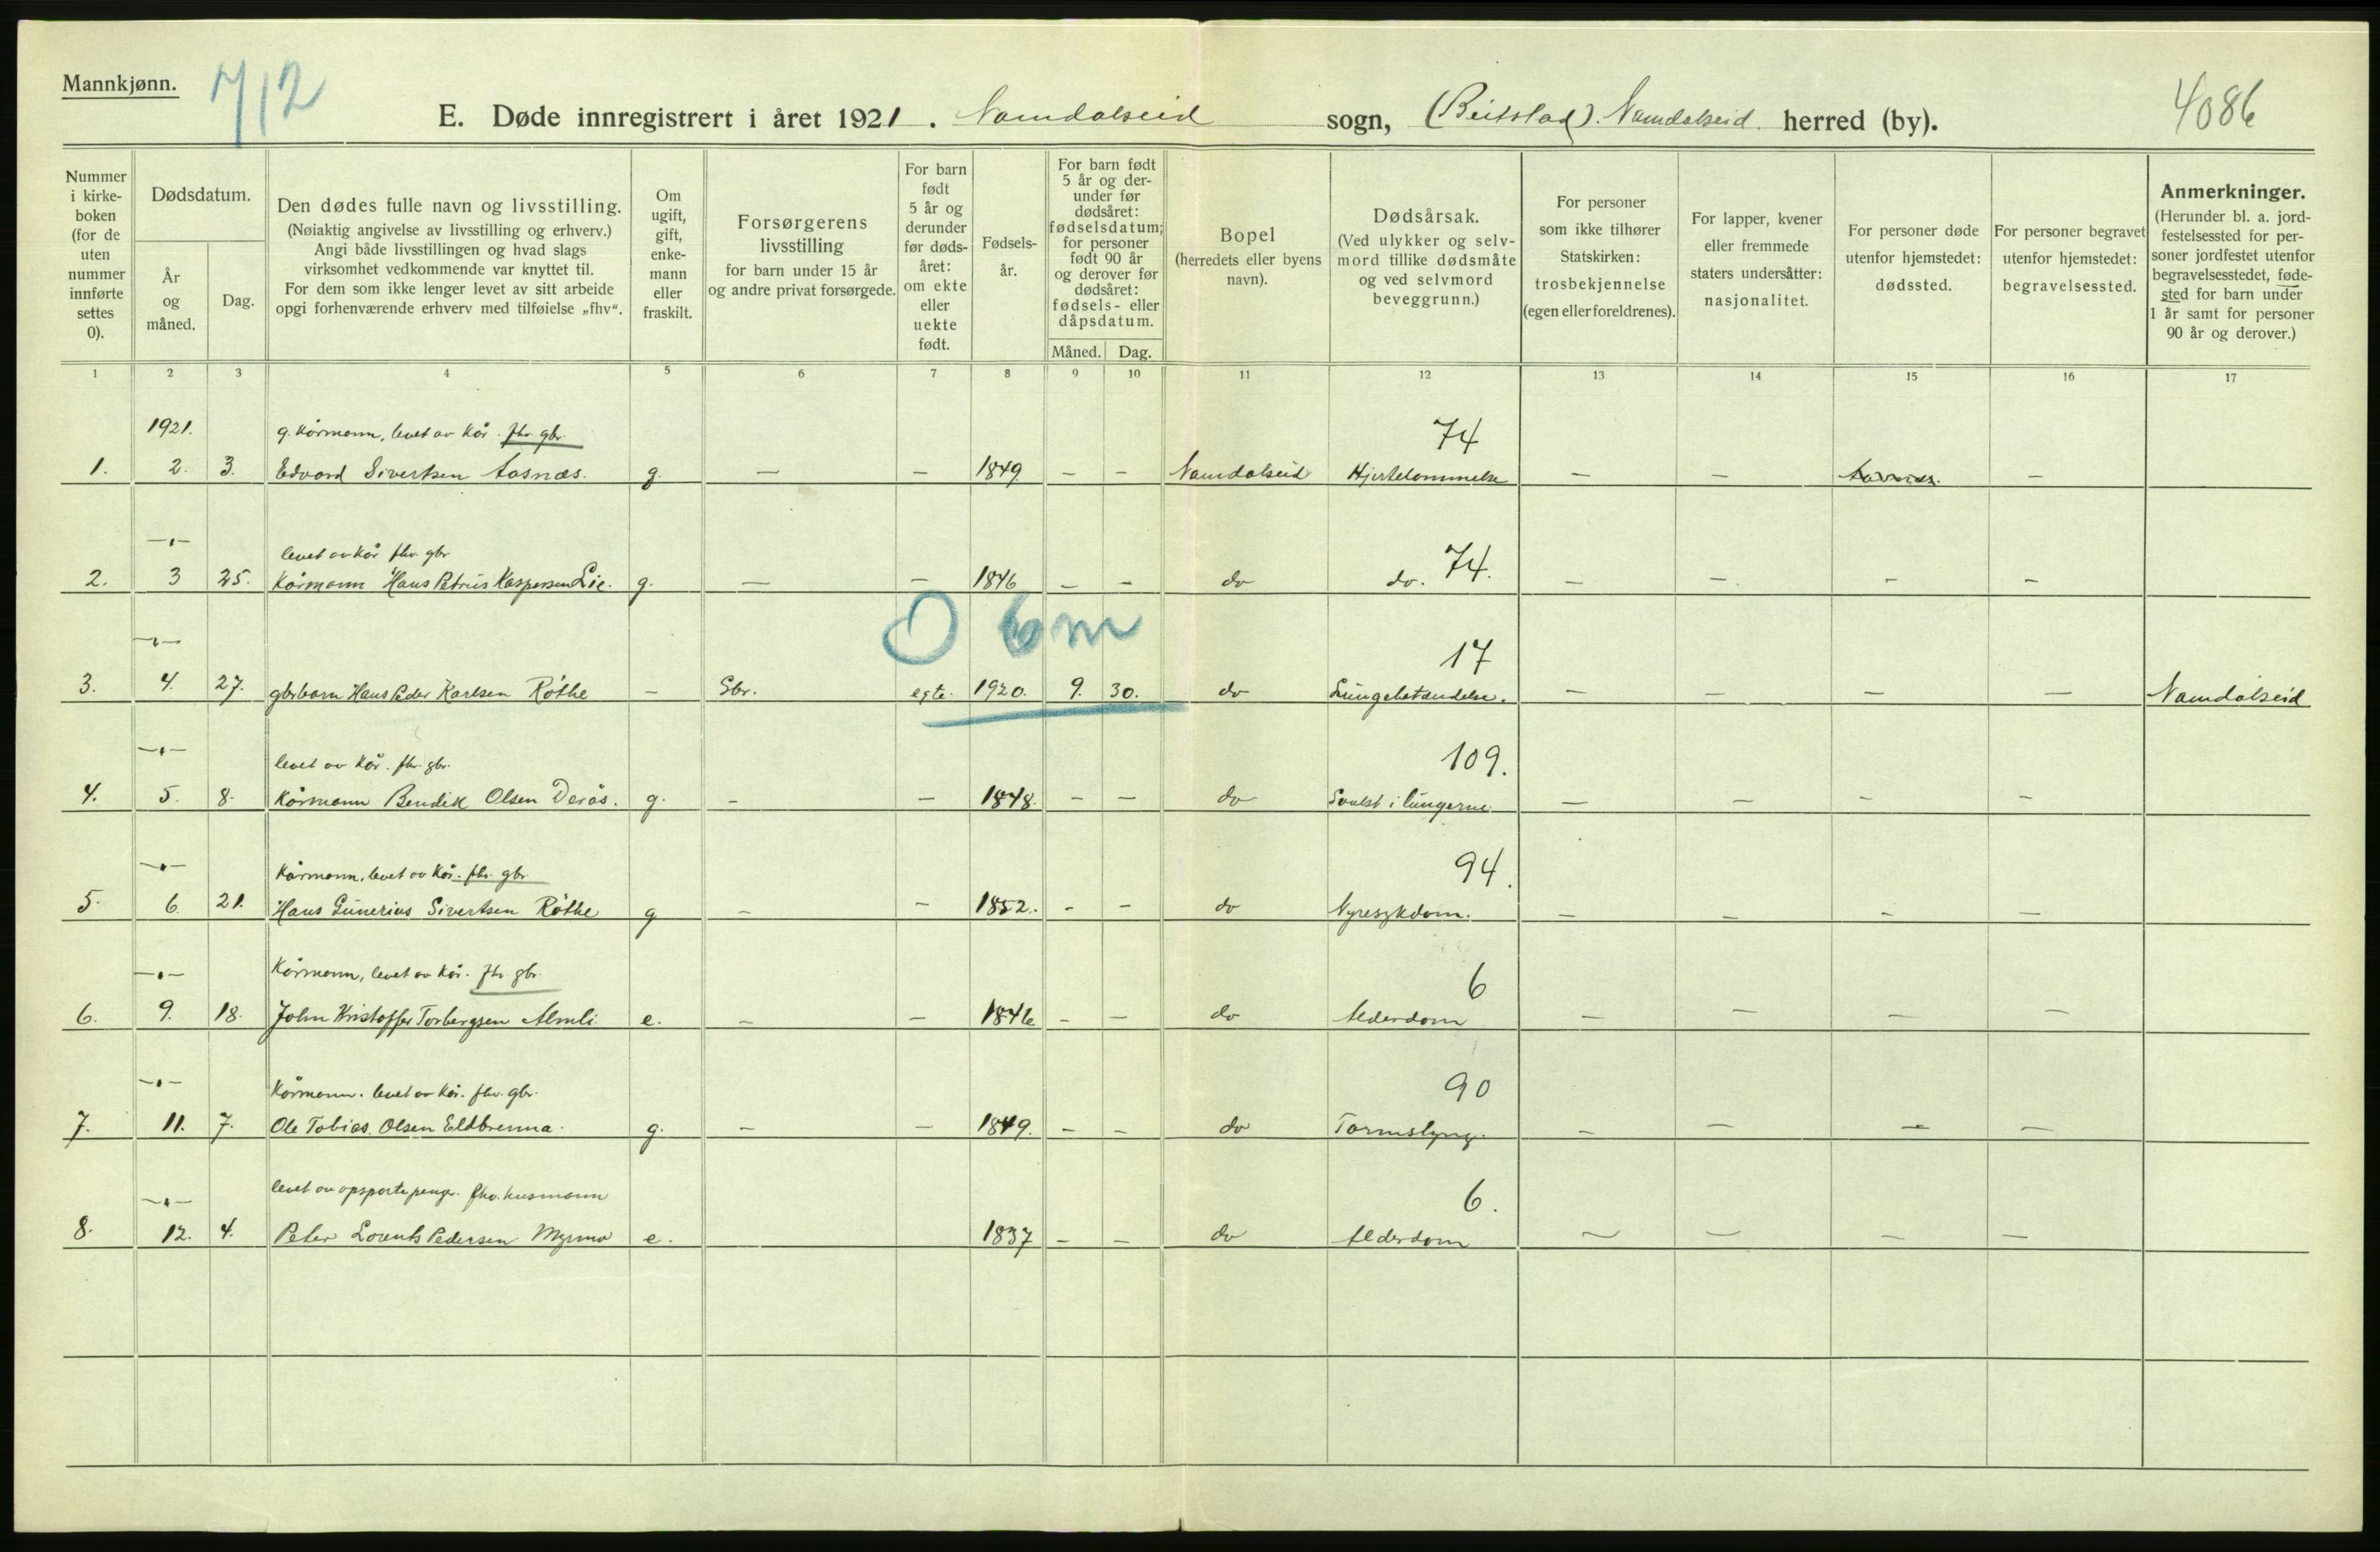 Mannkjønn.
712
E. Døde innregistrert i året 1921. Namdalseid sogn, (Beitstad). Namdalseid herred (by).
4086
Nummer i kirke-boken (for de uten nummer innførte settes 0).
Dødsdatum.
År og måned.
Dag.
Den dødes fulle navn og livsstilling.
(Nøiaktig angivelse av livsstilling og erhverv.)
Angi både livsstillingen og hvad slags
virksomhet vedkommende var knyttet til.
For dem som ikke lenger levet av sitt arbeide
opgi forhenværende erhverv med tilføielse „fhv“.
Om ugift, gift, enke-mann eller fraskilt.
Forsørgerens
livsstilling
for barn under 15 år
og andre privat forsørgede.
For barn født 5 år og derunder før døds-året: om ekte eller uekte født.
Fødsels-år.
For barn født 5 år og der-under før dødsåret: fødselsdatum; for personer født 90 år og derover før dødsåret: fødsels- eller dåpsdatum.
Måned. Dag.
Bopel
(herredets eller byens
navn).
Dødsårsak.
(Ved ulykker og selv-
mord tillike dødsmåte
og ved selvmord
beveggrunn.)
For personer
som ikke tilhører
Statskirken:
trosbekjennelse
(egen eller foreldrenes).
For lapper, kvener
eller fremmede
staters undersåtter:
nasjonalitet.
For personer døde
utenfor hjemstedet:
dødssted.
For personer begravet
utenfor hjemstedet:
begravelsessted.
Anmerkninger.
(Herunder bl. a. jord-
festelsessted for per-
soner jordfestet utenfor
begravelsesstedet, føde-
sted for barn under
1 år samt for personer
90 år og derover.)
1 2 3 4 5 6 7 8 9 10 11 12 13 14 15 16 17
1921. g. Kårmann, levet av kår. fhv. gbr. 74
1. 2. 3. Edvard Sivertsen Aasnæs. g. — — 1849 – – Namdalseid Hjertelammelse — — — 
—„— levet av kår fhv. gbr
2. 3 25. Kårmann Hans Petrus Kaspersen Lie. g. — — 1846 – – do do. 74. — — — —
—„— 0 6m 17
3. 4. 27. gbrbarn Hans Peder Karlsen Røthe — Gbr. egte. 1920. 9. 30. do Lungebetændelse. — — — — Namdalseid
—„— levet av kår. fhv. gbr. 109.
4. 5. 8. Kårmann Bendik Olsen Derås. g. – — 1848. – – do Svulst i lungerne. — — — —
—„— Kårmann, levet av kår. fhv. gbr 94.
5. 6. 21. Hans Gunerius Sivertsen Røthe g – – 1852. – – do Nyresykdom. — — — —
—„— Kårmann, levet av kår. fhv. gbr. 6
6. 9. 18. John Kristoffer Torbergsen Almli e. – – 1846 – – do Alderdom — — — —
—„— Kårmann. levet av kår. fhv. gbr. 90
7. 11. 7. Ole Tobias Olsen Eldbrenna. g. – – 1849. – – do Tarmslyng. — — — —
—„— levet av opsparte penger. fhv. husmann 6.
8. 12. 4. Peter Lorents Pedersen Myrmo e. 1837 – – do Alderdom — — — —